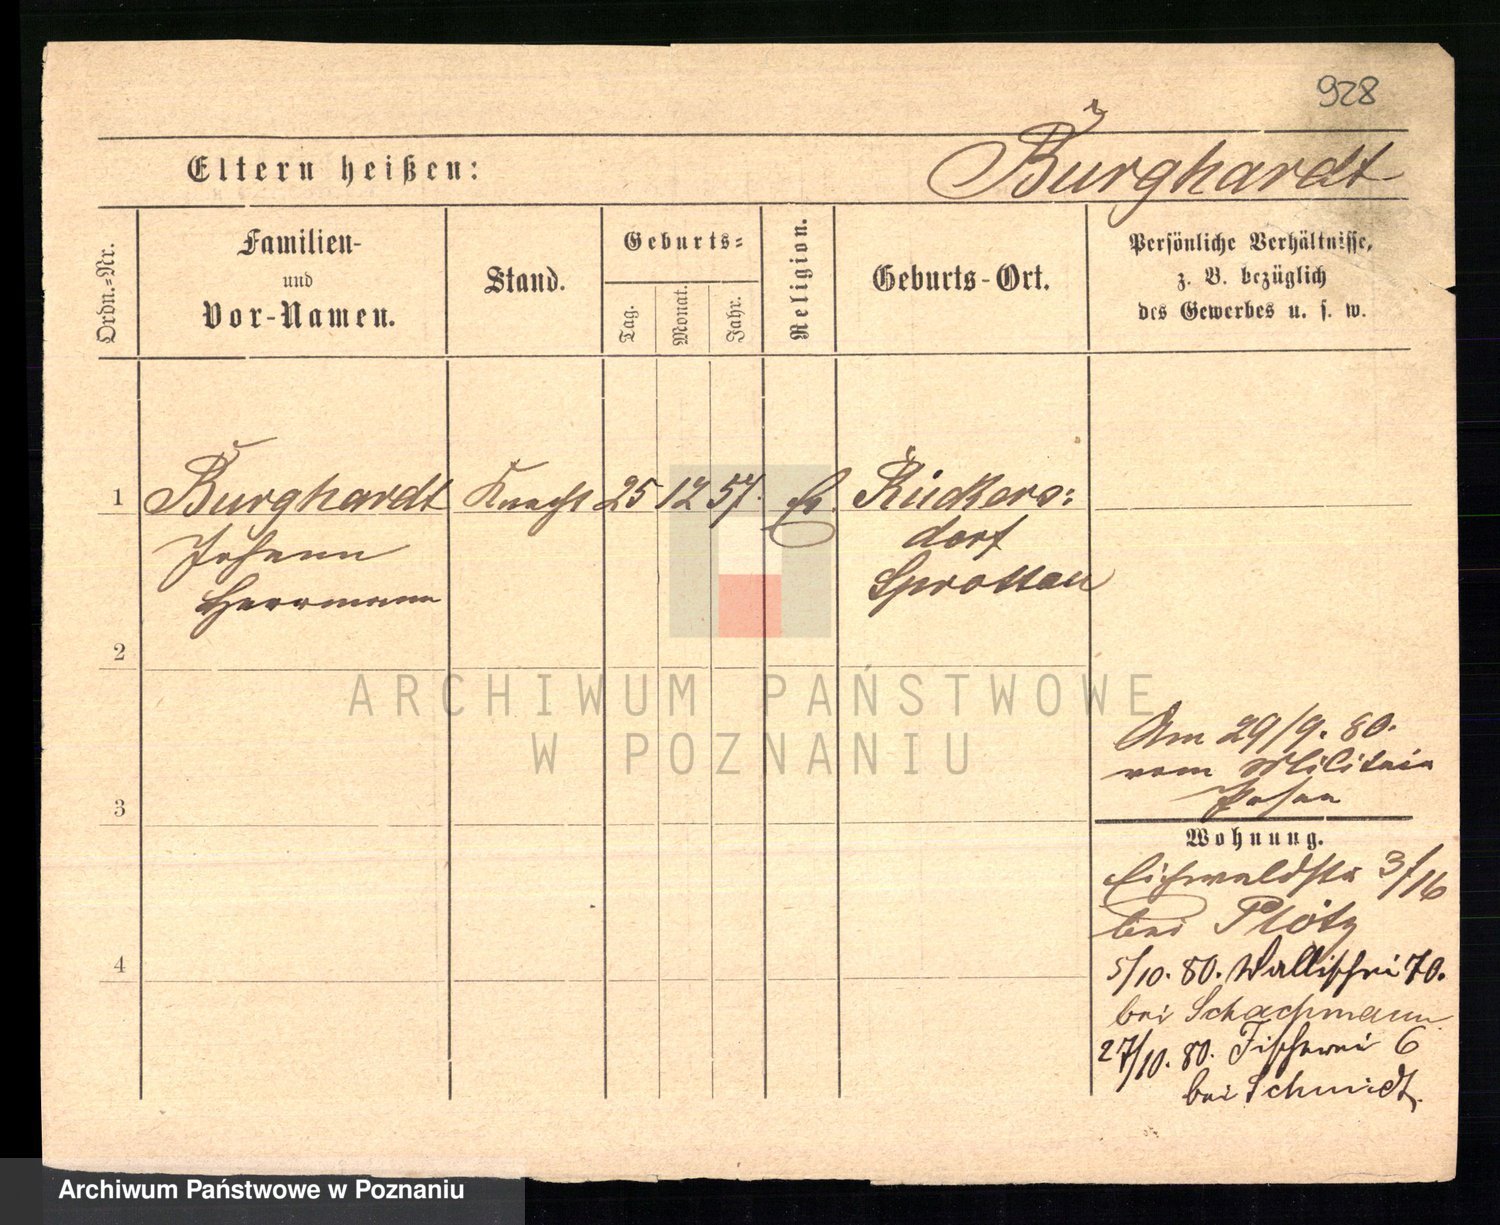 928
Eltern heißen:
Burghardt
Ordn.-Nr.
Familien-
und
Vor-Namen.
Stand.
Geburts-
Tag.
Monat.
Jahr.
Religion.
Geburts-Ort.
Persönliche Verhältnisse,
z. B. bezüglich
des Gewerbes u. s. w.
1
Burghardt
Knecht
25
12
57.
Ev.
Rückers-
Johann
dorf
Herrmann
Sprottau
2
ARCHIWUM PAŃSTWOWE
W POZNANIU
Am 29/9. 80.
vom Militair
Posen
3
Wohnung.
Eichwaldstr 3/16
bei Plötz
4
5/10. 80. Wallischei 70.
bei Schachmann
27/10. 80. Fischerei 6
bei Schmidt.
Archiwum Państwowe w Poznaniu